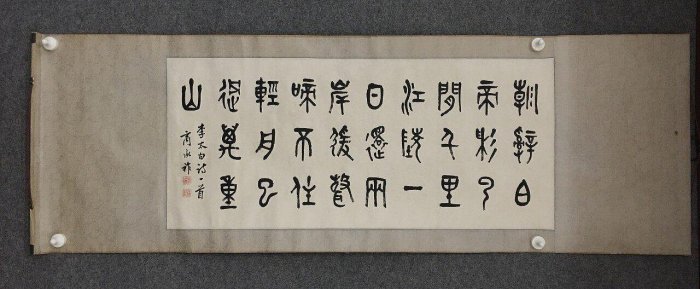 朝辭白
帝彩云
間千里
江陵一
日還兩
岸猨聲
啼不住
輕舟已
過萬重
山
李太白詩一首
商承祚